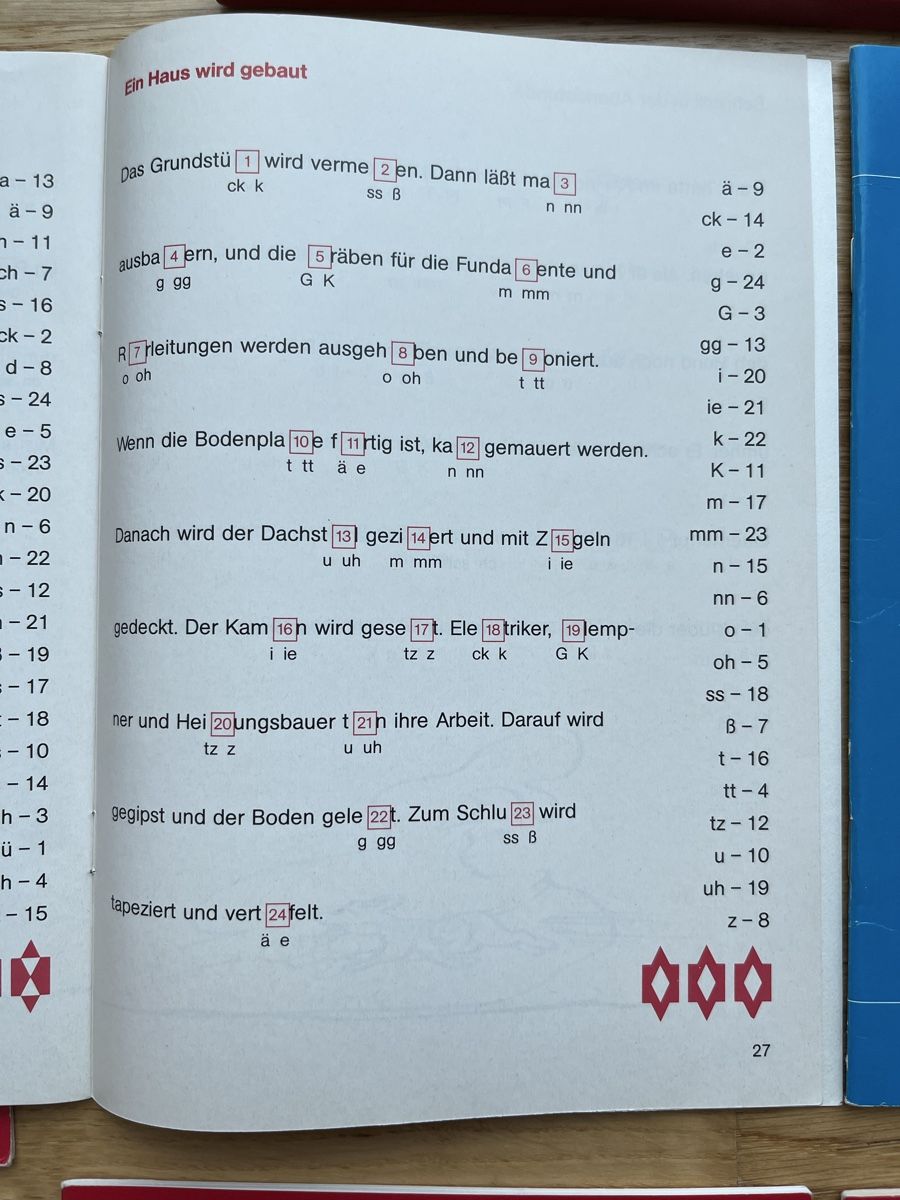 a – 13
ä – 9
– 11
ch – 7
– 16
ck – 2
d – 8
– 24
e – 5
– 23
– 20
n – 6
– 22
– 12
– 21
– 19
– 17
– 18
– 10
– 14
h – 3
ü – 1
h – 4
– 15
Ein Haus wird gebaut
Das Grundstü 1 wird verme 2 en. Dann läßt ma 3
ck k ss ß n nn
ausba 4 ern, und die 5 räben für die Funda 6 ente und
g gg G K m mm
R 7 rleitungen werden ausgeh 8 ben und be 9 oniert.
o oh o oh t tt
Wenn die Bodenpla 10 e f 11 rtig ist, ka 12 gemauert werden.
t tt ä e n nn
Danach wird der Dachst 13 l gezi 14 ert und mit Z 15 geln
u uh m mm i ie
gedeckt. Der Kam 16 n wird gese 17 t. Ele 18 triker, 19 lemp-
i ie tz z ck k G K
ner und Hei 20 ungsbauer t 21 n ihre Arbeit. Darauf wird
tz z u uh
gegipst und der Boden gele 22 t. Zum Schlu 23 wird
g gg ss ß
tapeziert und vert 24 felt.
ä e
ä – 9
ck – 14
e – 2
g – 24
G – 3
gg – 13
i – 20
ie – 21
k – 22
K – 11
m – 17
mm – 23
n – 15
nn – 6
o – 1
oh – 5
ss – 18
ß – 7
t – 16
tt – 4
tz – 12
u – 10
uh – 19
z – 8
27